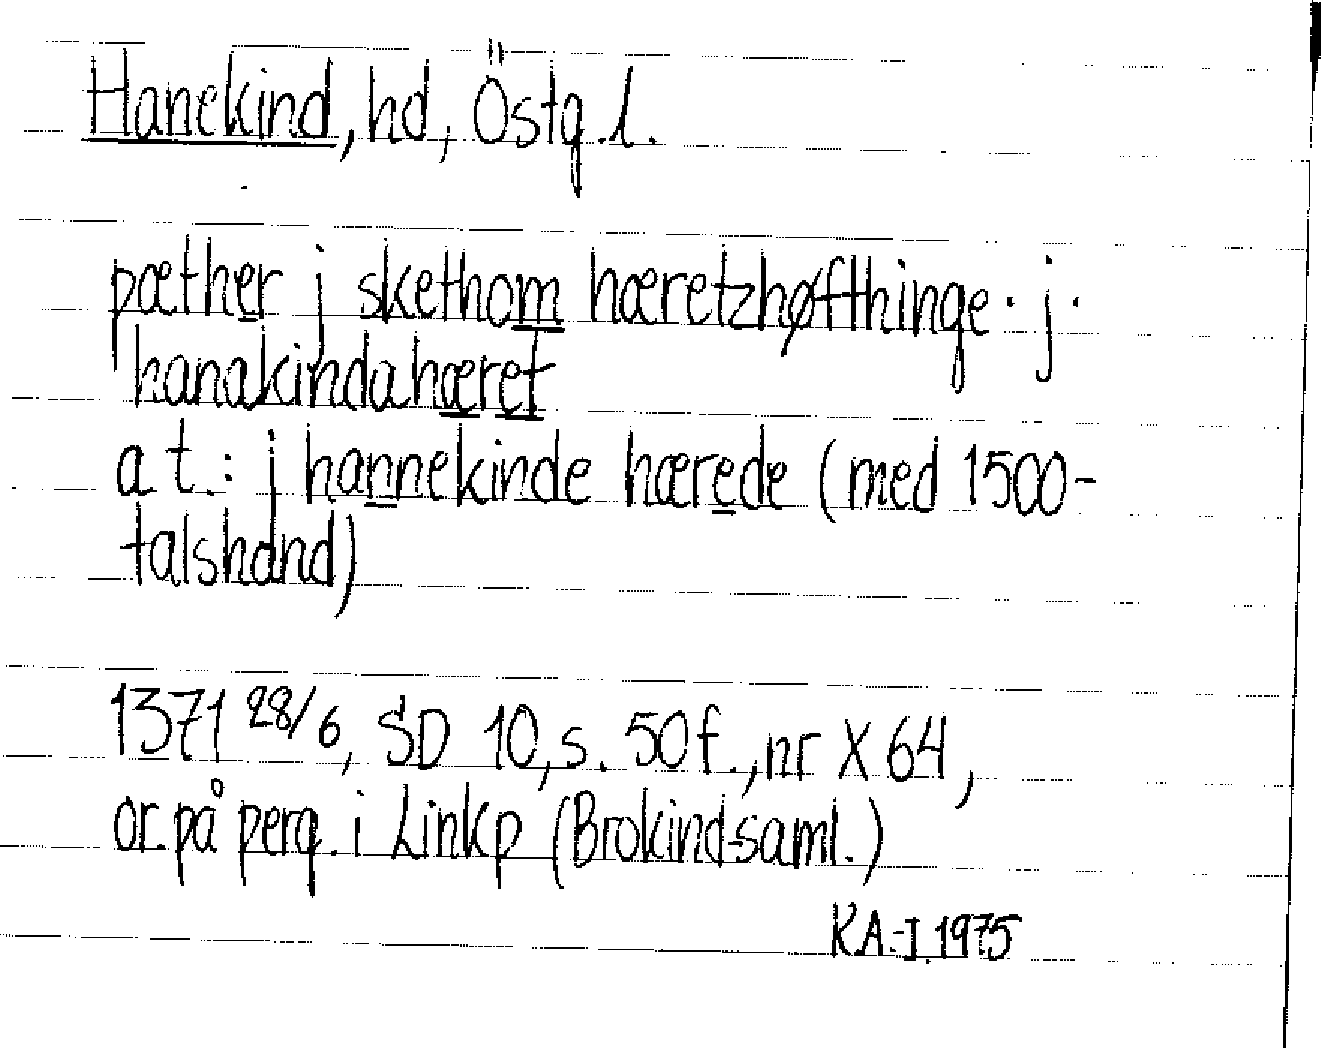 Hanekind, hd, Östg.l.
pæther j skethom hæretzhøfthinge · j ·
hanakindahæret
a t.: j hannekinde hærede (med 1500-
talshand)
1371 28/6, SD 10, s. 50 f., nr X 64,
or. på perg. i Linkp (Brokind-saml.)
KA.-J. 1975